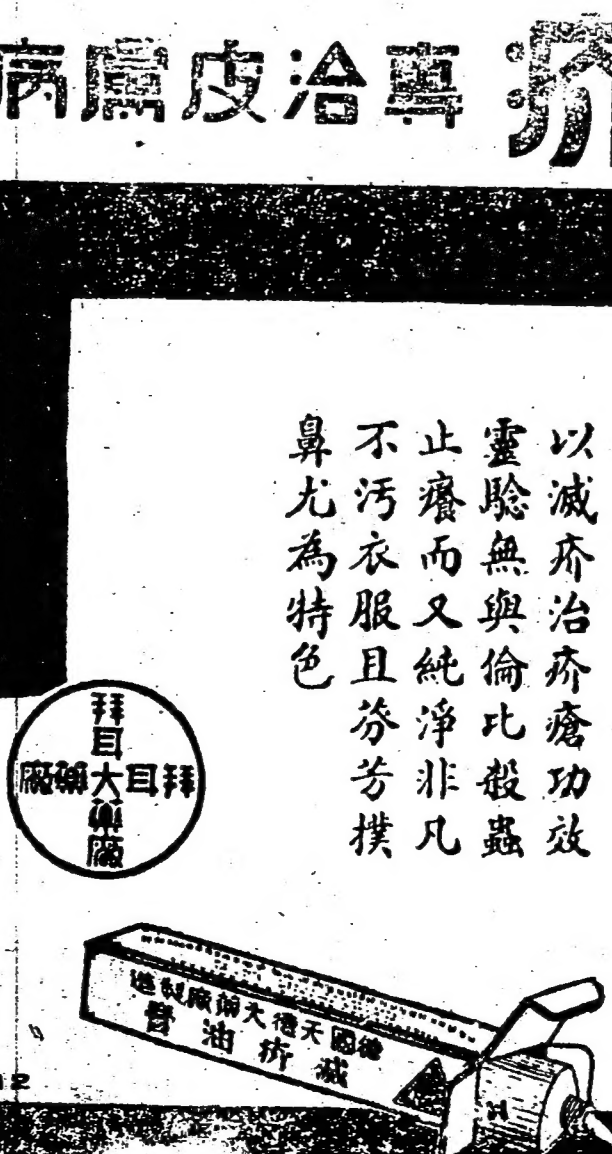 疥
專治皮膚病
以滅疥治疥瘡功效
靈驗無與倫比殺蟲
止癢而又純淨非凡
不污衣服且芬芳撲
鼻尤為特色
拜耳大藥廠
拜耳大藥廠
德國天德大藥廠製造
滅疥油膏
12
H